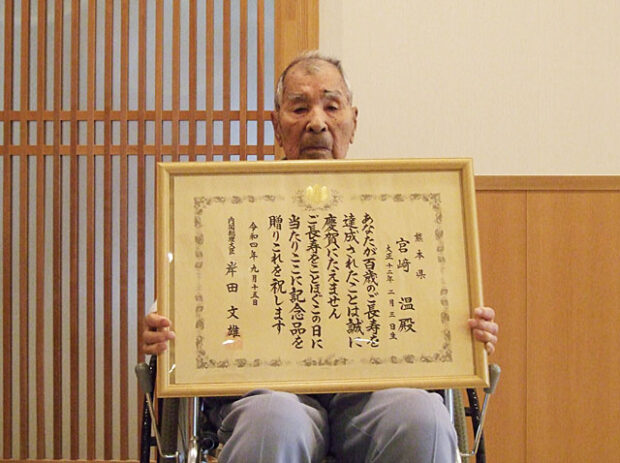 熊本県
宮﨑 温殿
大正十二年 二月三日生
あなたが百歳のご長寿を
達成されたことは誠に
慶賀にたえません
ご長寿をことほぐこの日に
当たりここに記念品を
贈りこれを祝します
令和四年九月十五日
内閣総理大臣 岸田文雄